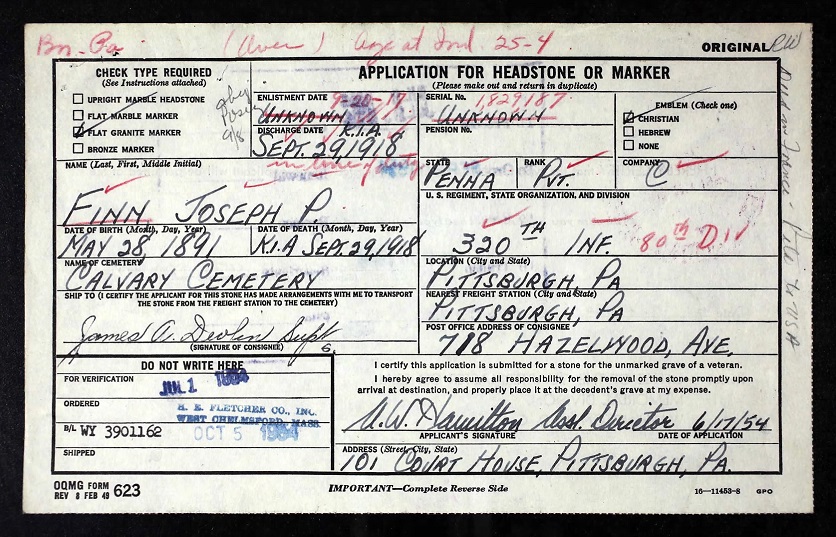 Bn. Pa (Over) Age at Ind. 25-4
ORIGINAL RW
CHECK TYPE REQUIRED
(See Instructions attached)
UPRIGHT MARBLE HEADSTONE
FLAT MARBLE MARKER
FLAT GRANITE MARKER
BRONZE MARKER
APPLICATION FOR HEADSTONE OR MARKER
(Please make out and return in duplicate)
ENLISTMENT DATE 9-20-17
UNKNOWN
DISCHARGE DATE K.I.A.
SEPT. 29, 1918
in line of duty
SERIAL No. 1,829,187
UNKNOWN
PENSION No.
EMBLEM (Check one)
CHRISTIAN
HEBREW
NONE
NAME (Last, First, Middle Initial)
FINN JOSEPH P.
STATE
PENNA
RANK
PVT.
COMPANY
C
U. S. REGIMENT, STATE ORGANIZATION, AND DIVISION
320TH INF. 80th DIV
DATE OF BIRTH (Month, Day, Year)
MAY 28, 1891
DATE OF DEATH (Month, Day, Year)
K.I.A SEPT. 29, 1918
NAME OF CEMETERY
CALVARY CEMETERY
LOCATION (City and State)
PITTSBURGH, PA
SHIP TO (I CERTIFY THE APPLICANT FOR THIS STONE HAS MADE ARRANGEMENTS WITH ME TO TRANSPORT
THE STONE FROM THE FREIGHT STATION TO THE CEMETERY)
James A. Devlin Supt
(SIGNATURE OF CONSIGNEE)
NEAREST FREIGHT STATION (City and State)
PITTSBURGH, PA
POST OFFICE ADDRESS OF CONSIGNEE
718 HAZELWOOD, AVE.
DO NOT WRITE HERE
FOR VERIFICATION JUL 1 1954
ORDERED
H. E. FLETCHER CO., INC.
WEST CHELMSFORD, MASS.
B/L WY 3901162
OCT 5 1954
SHIPPED
I certify this application is submitted for a stone for the unmarked grave of a veteran.
I hereby agree to assume all responsibility for the removal of the stone promptly upon
arrival at destination, and properly place it at the decedent's grave at my expense.
A. W. Hamilton Asst. Director 6/17/54
APPLICANT'S SIGNATURE DATE OF APPLICATION
ADDRESS (Street, City, State)
101 COURT HOUSE, PITTSBURGH, PA.
OQMG FORM
REV 8 FEB 49 623
IMPORTANT—Complete Reverse Side
16—11453-8 GPO